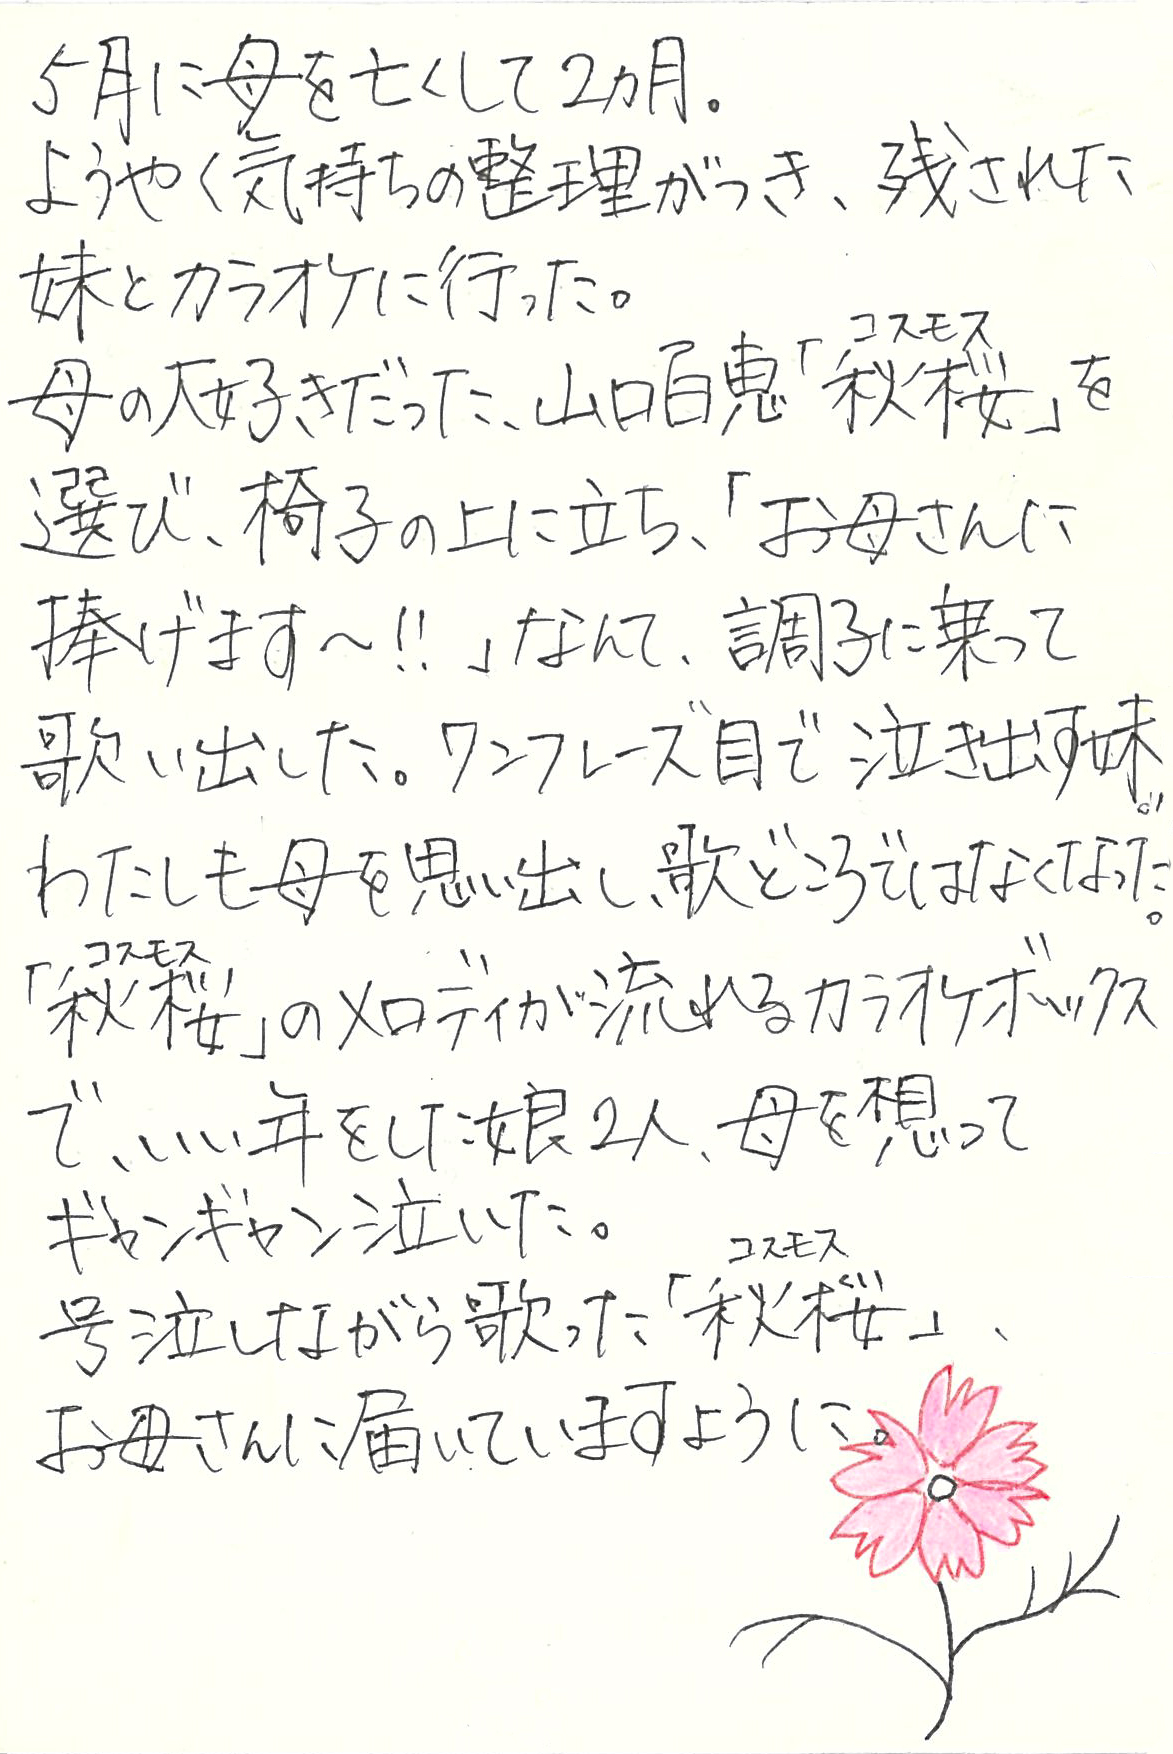 5月に母を亡くして2カ月。
ようやく気持ちの整理がつき、残された
妹とカラオケに行った。
コスモス
母の大好きだった、山口百恵「秋桜」を
選び、椅子の上に立ち、「お母さんに
捧げます〜!!」なんて、調子に乗って
歌い出した。ワンフレーズ目で泣き出す妹。
わたしも母を思い出し、歌どころではなくなった。
コスモス
「秋桜」のメロディが流れるカラオケボックス
で、いい年をした娘2人、母を想って
ギャンギャン泣いた。
コスモス
号泣しながら歌った「秋桜」、
お母さんに届いていますように。